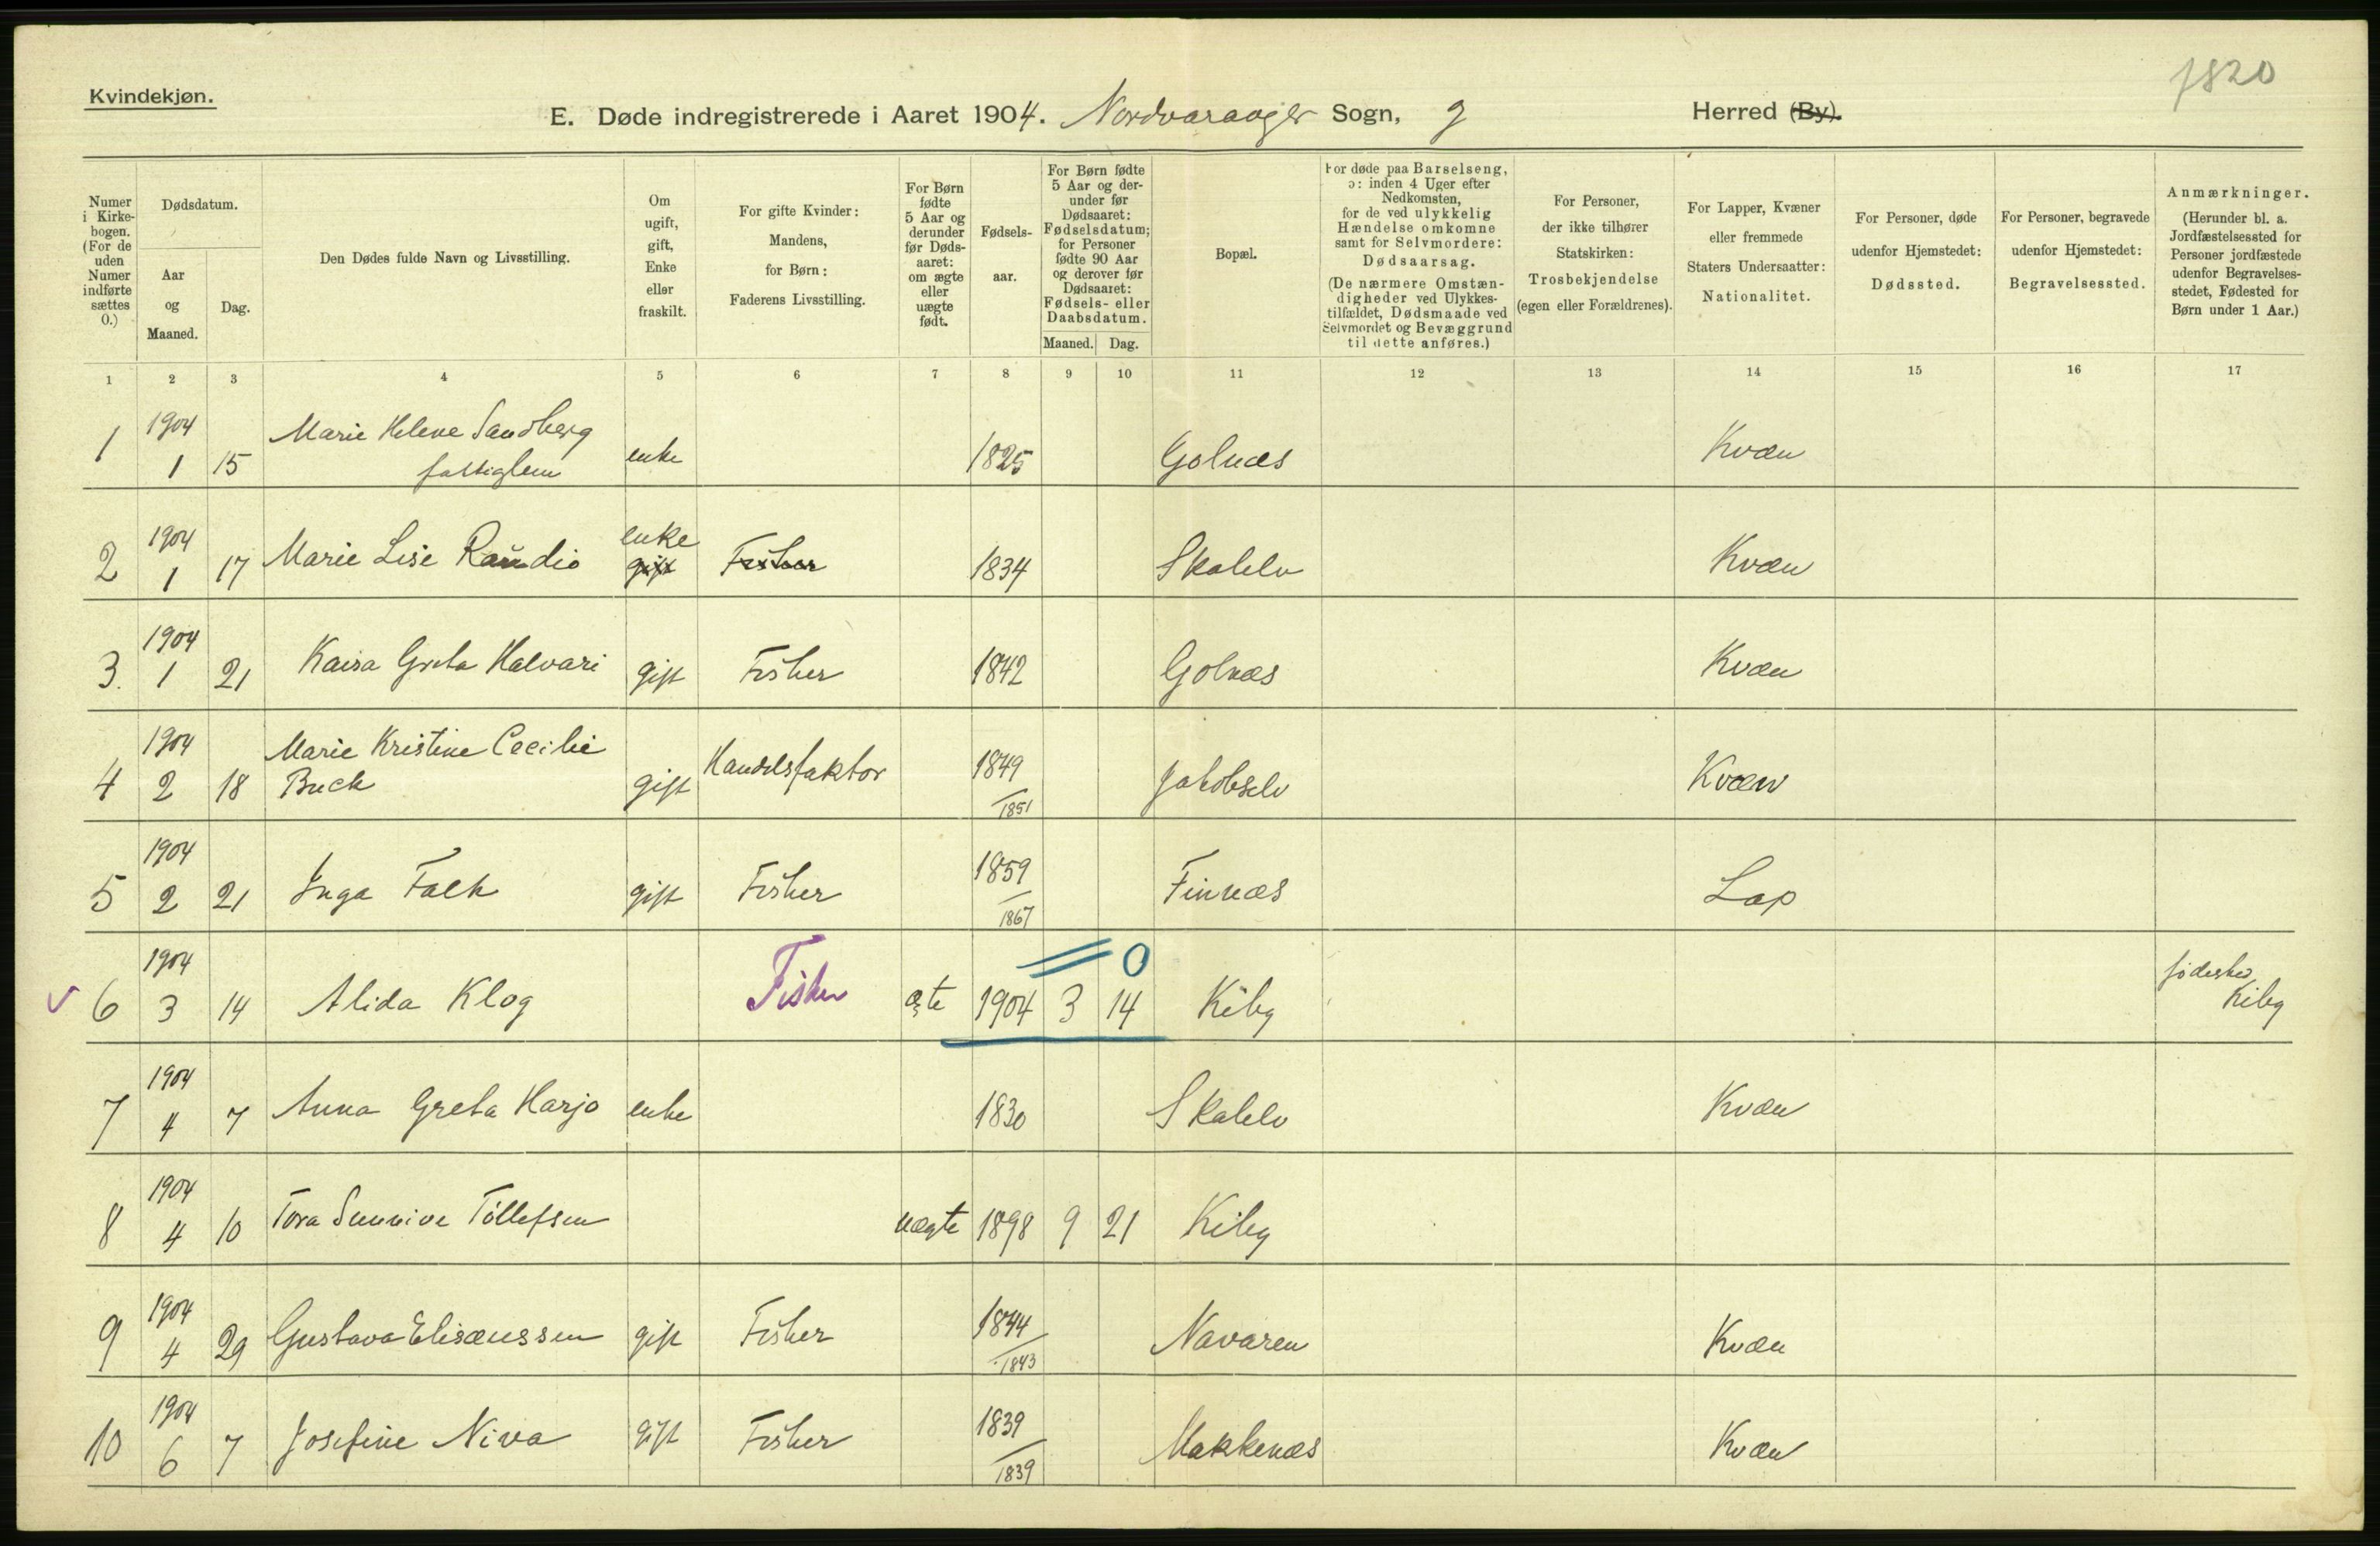 Kvindekjøn.
1820
E. Døde indregistrerede i Aaret 1904. Nordvaranger Sogn, 2 Herred (By).
Numer i Kirkebogen. (For de uden Numer indførte sættes 0.)
Dødsdatum.
Aar og Maaned.
Dag.
Den Dødes fulde Navn og Livsstilling.
Om ugift, gift, Enke eller fraskilt.
For gifte Kvinder: Mandens, for Børn: Faderens Livsstilling.
For Børn fødte 5 Aar og derunder før Dødsaaret: om ægte eller uægte født.
Fødselsaar.
For Børn fødte 5 Aar og derunder før Dødsaaret: Fødselsdatum; for Personer fødte 90 Aar og derover før Dødsaaret: Fødsels- eller Daabsdatum.
Maaned. Dag.
Bopæl.
For døde paa Barselseng, ɔ: inden 4 Uger efter Nedkomsten, for de ved ulykkelig Hændelse omkomne samt for Selvmordere: Dødsaarsag. (De nærmere Omstændigheder ved Ulykkestilfældet, Dødsmaade ved Selvmordet og Bevæggrund til dette anføres.)
For Personer, der ikke tilhører Statskirken: Trosbekjendelse (egen eller Forældrenes).
For Lapper, Kvæner eller fremmede Staters Undersaatter: Nationalitet.
For Personer, døde udenfor Hjemstedet: Dødssted.
For Personer, begravede udenfor Hjemstedet: Begravelsessted.
Anmærkninger. (Herunder bl. a. Jordfæstelsessted for Personer jordfæstede udenfor Begravelsesstedet, Fødested for Børn under 1 Aar.)
1 2 3 4 5 6 7 8 9 10 11 12 13 14 15 16 17
1 1904 1 15 Marie Helene Sandberg fattiglem enke 1825 Golnæs Kvæn
2 1904 1 17 Marie Lise Raudio enke gift Fisker 1834 Skalelv Kvæn
3. 1904 1 21 Kaisa Greta Halvari gift Fisker 1842 Golnæs Kvæn
4 1904 2 18 Marie Kristine Cecilie Buck gift Handelsfaktor 1849 / 1851 Jakobselv Kvæn
5 1904 2 21 Inga Falk gift Fisker 1859 / 1867 Finnæs Lap
6 1904 3 14 Alida Klog Fisker ægte 1904 3 14 0 Kiby fødested Kiby
7 1904 4 7 Anna Greta Harjo enke 1830 Skalelv Kvæn
8 1904 4 10 Tora Sunnive Tollefsen uægte 1898 9 21 Kiby
9 1904 4 29 Gustava Elisæussen gift Fisker 1844 / 1843 Navaren Kvæn
10 1904 6 7 Josefine Niva gift Fisker 1839 / 1839 Makkenæs Kvæn